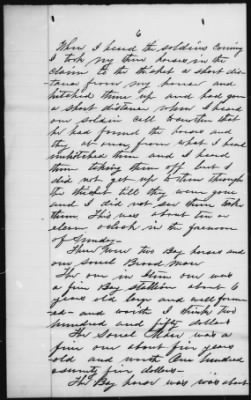 6
When I heard the soldiers coming
I took my three horses in the
to the thicket a short dis-
tance from my house and
hitched them up and had gone
a short distance when I heard
one soldier call to another that
he had found the horses and
they at once from what I heard
unhitched them and I heard
them taking them off but I
did not get up to them through
the thicket till they were gone
and I did not see them take
them. This was about ten or
eleven oclock in the forenoon
of Sunday-
There were two Bay horses and
one Sorrel Brood Mare
The one in Item one was
a fine Bay Stallion about 6
years old large and well form-
ed- and worth I think two
hundred and fifty dollars
The Sorrel Mare was a
fine one about five years
old and worth One hundred
seventy five dollars-
The Bay horse was was about